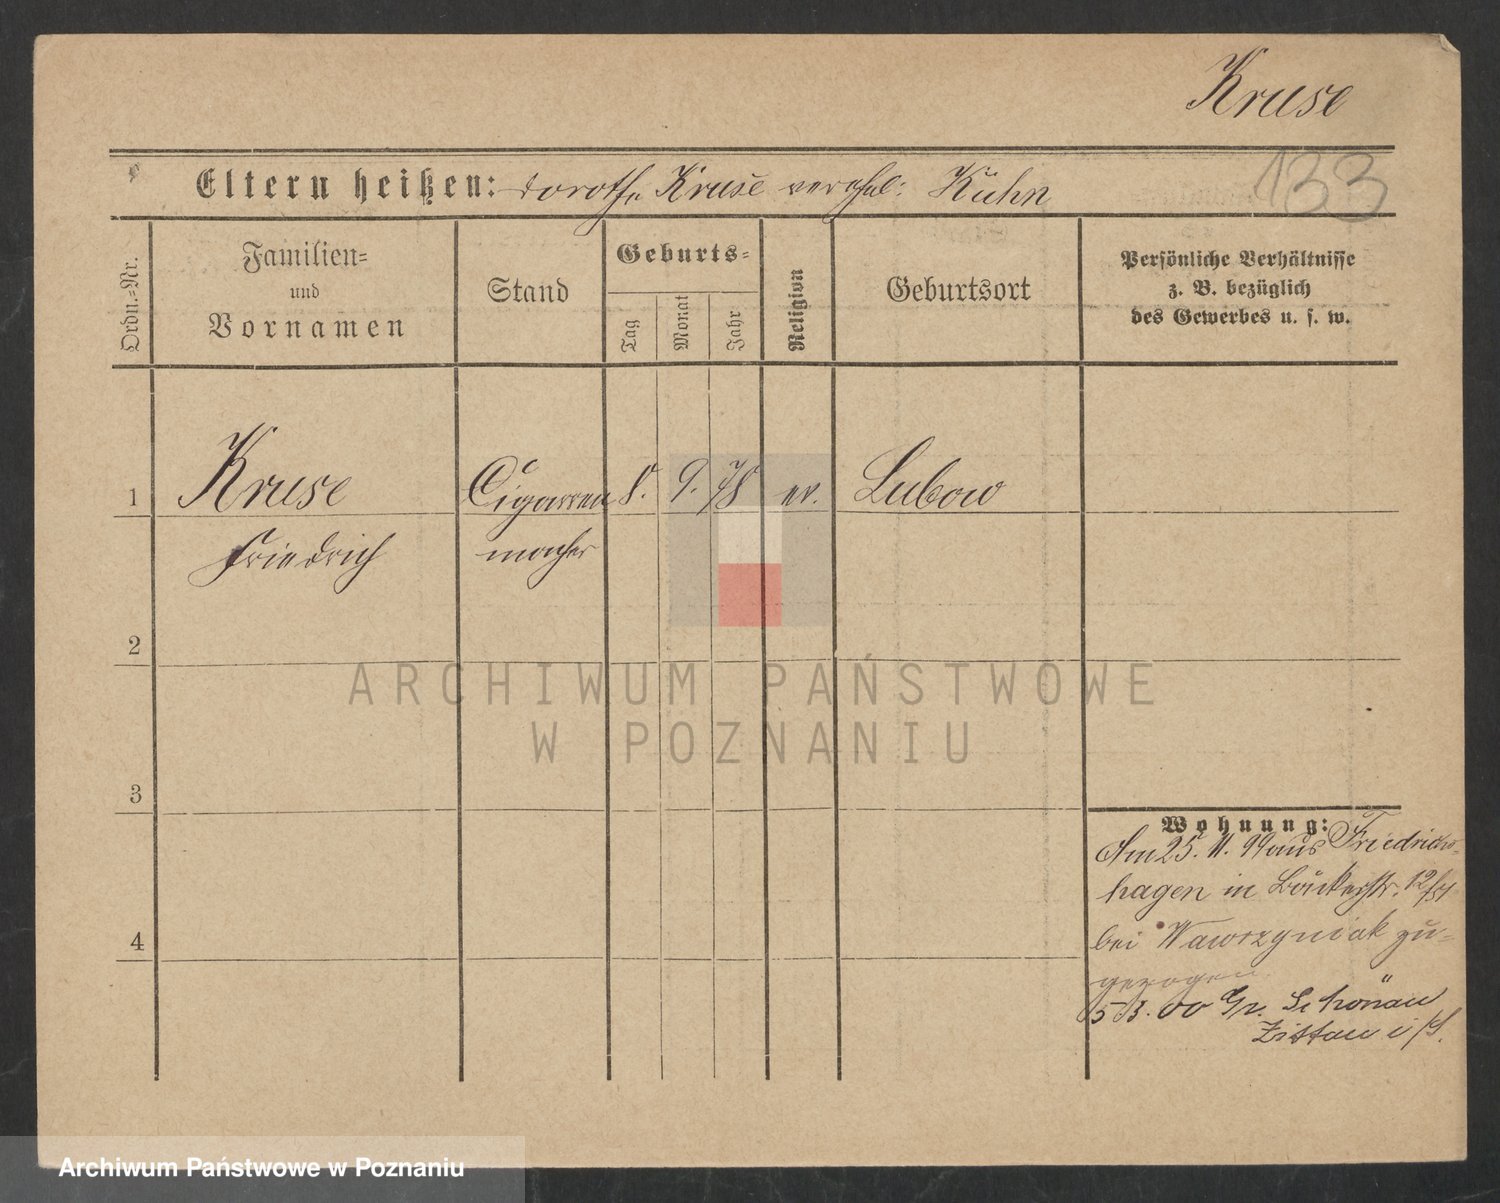 Kruse
133
Eltern heißen: Dorothe Kruse verehel: Kühn
Ordn.-Nr.
Familien-
und
Vornamen
Stand
Geburts-
Tag
Monat
Jahr
Religion
Geburtsort
Persönliche Verhältnisse
z. B. bezüglich
des Gewerbes u. s. w.
1 Kruse Cigarren 8. 9. 78 ev. Lubow
Friedrich macher
2
3
4
Wohnung:
Am 25. 11. 99 aus Friedrichs-
hagen in Bäckerstr. 12/
bei Wawrzyniak zu-
gezogen
5 3. 00 Gr. Schönau
Zittau i/S.
ARCHIWUM PAŃSTWOWE
W POZNANIU
Archiwum Państwowe w Poznaniu